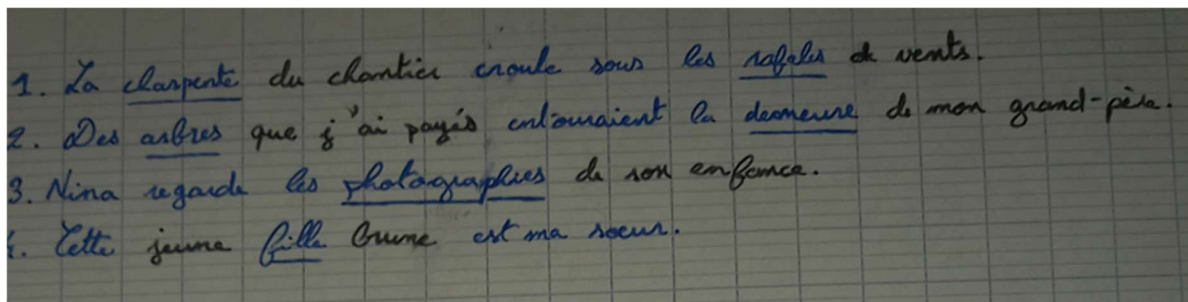 1. La charpente du chantier croule sous les rafales de vents.
2. Des arbres que j'ai payés entouraient la demeure de mon grand-père.
3. Nina regarde les photographies de son enfance.
4. Cette jeune fille brune est ma soeur.